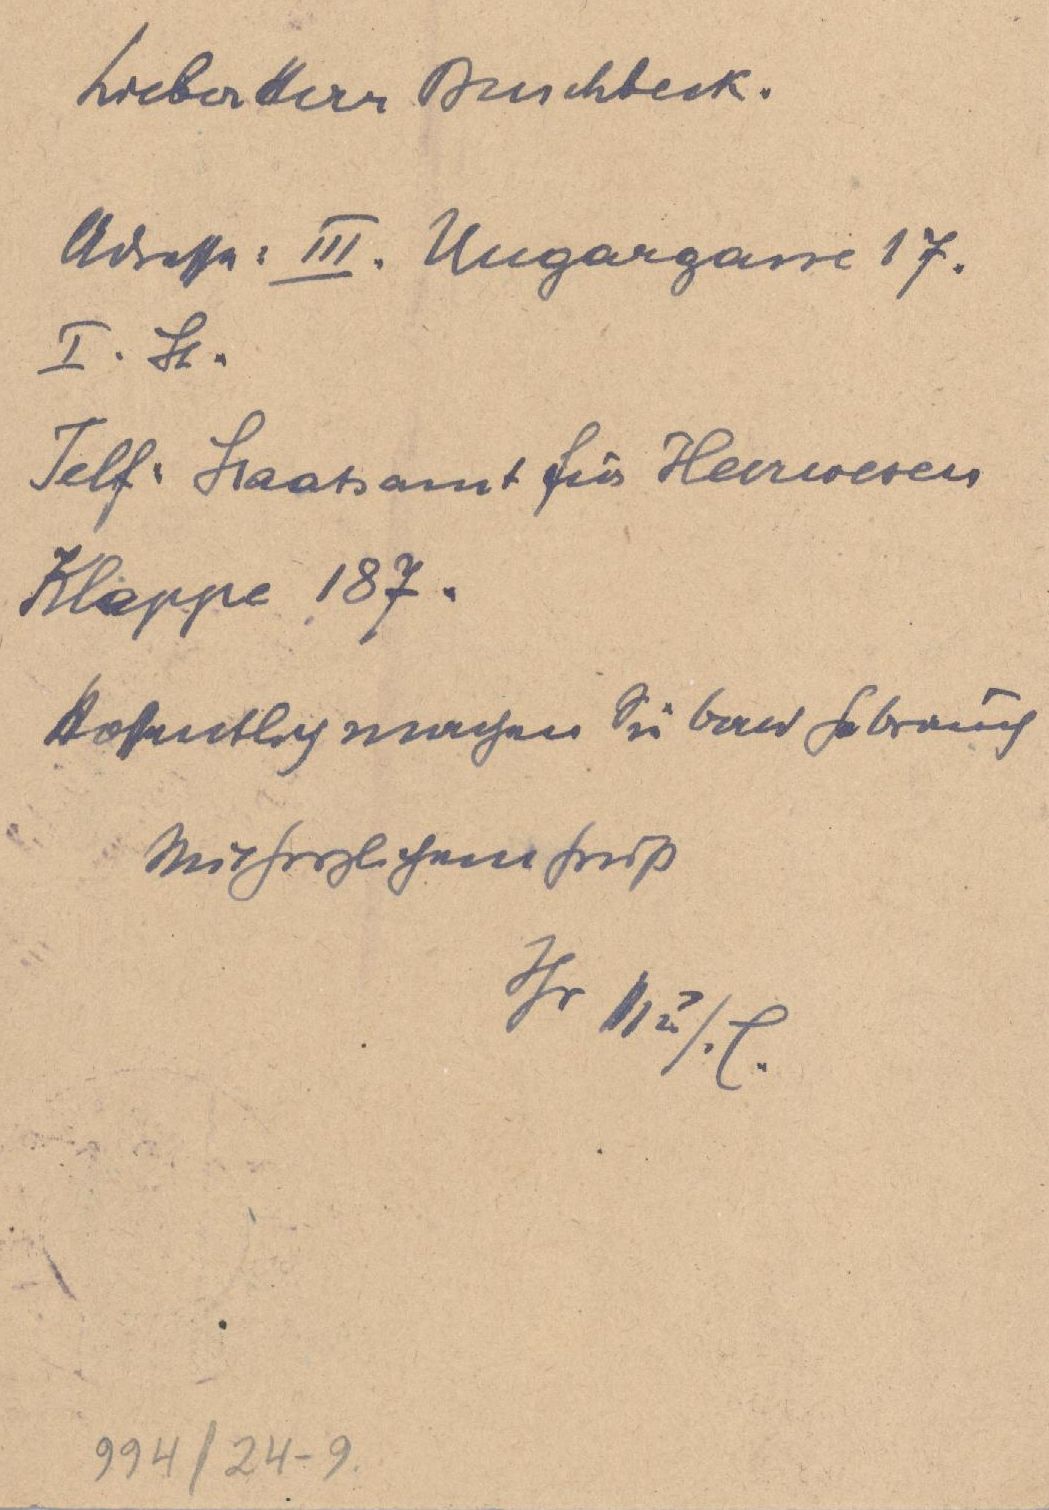 Lieber Herr Buschbeck.
Adresse: III. Ungargasse 17.
I. St.
Telf. Staatsamt für Heerwesen
Klappe 187.
Hoffentlich machen Sie bald Gebrauch
Mit herzlichem Gruß
Ihr
994/24-9.